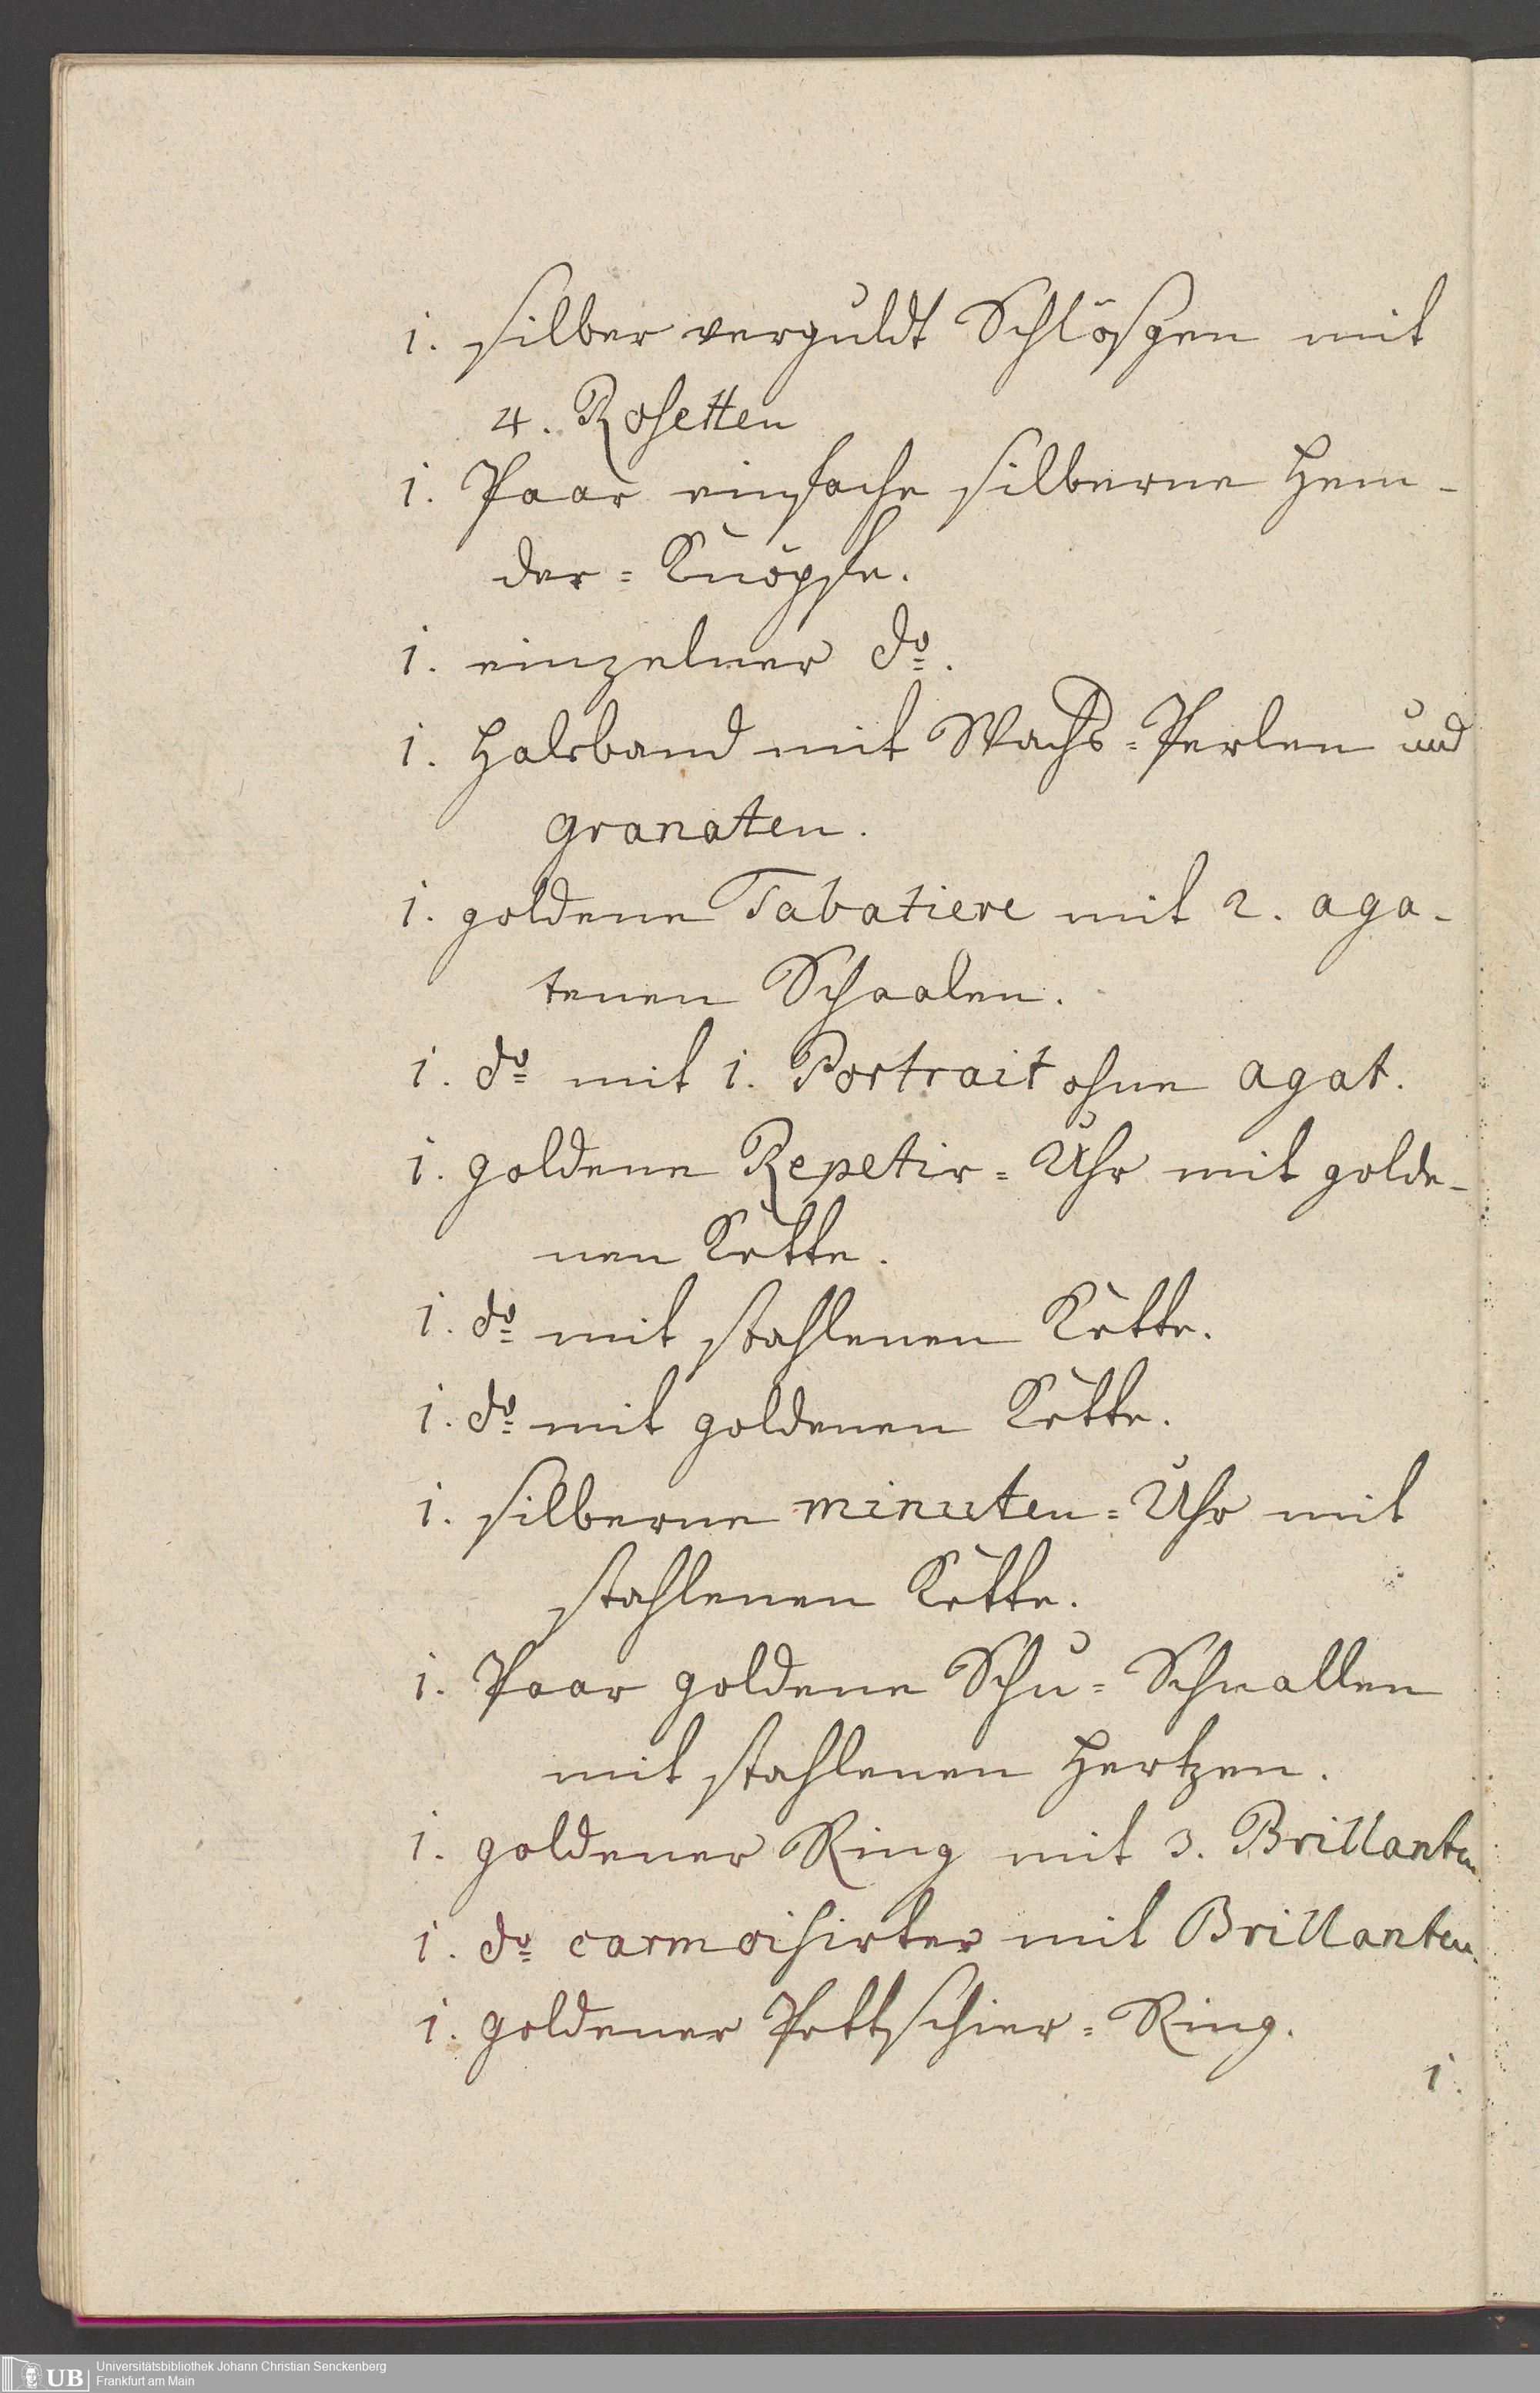 1. silber verguldt Schlößgen mit
4. Rosetten
1. Paar einfache silberne Hem-
der=Knöpfe.
1. einzelner do.
1. Halsband mit Wachs=Perlen und
granaten.
1. goldene Tabatiere mit 2. aga-
tenen Schaalen.
1. do mit 1. Portrait ohne agat.
1. goldene Repetir=Uhr mit golde-
nen Kette.
1. do mit stahlenen Kette.
1. do mit goldenen Kette.
1. silberne minuten=Uhr mit
stahlenen Kette.
1. Paar goldene Schu=Schnallen
mit stahlenen Hertzen.
1. goldener Ring mit 3. Brillanten
1. do carmoisirter mit Brillanten.
1. goldener Pettschier=Ring.
1.
UB Universitätsbibliothek Johann Christian Senckenberg
Frankfurt am Main